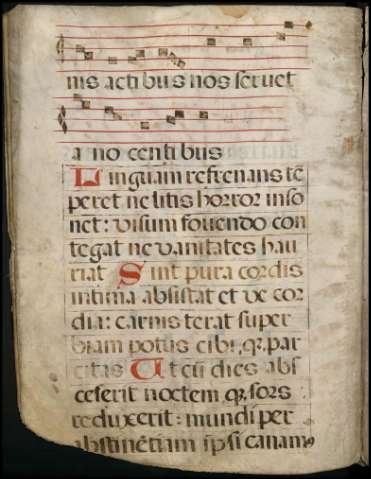 nis actibus nos servet
a no centibus
Linguam refrenans tē
peret ne litis horror inso
net: visum fovendo con
tegat ne vanitates hau
riat Sint pura cordis
intima absistat et ve cor
dia: carnis terat super
biam potus cibi, qȝ, par
citas Ut cū dies abs
ceserit noctem qȝ, sors
reduxerit: mundi per
abstinētiam ipsi canam9